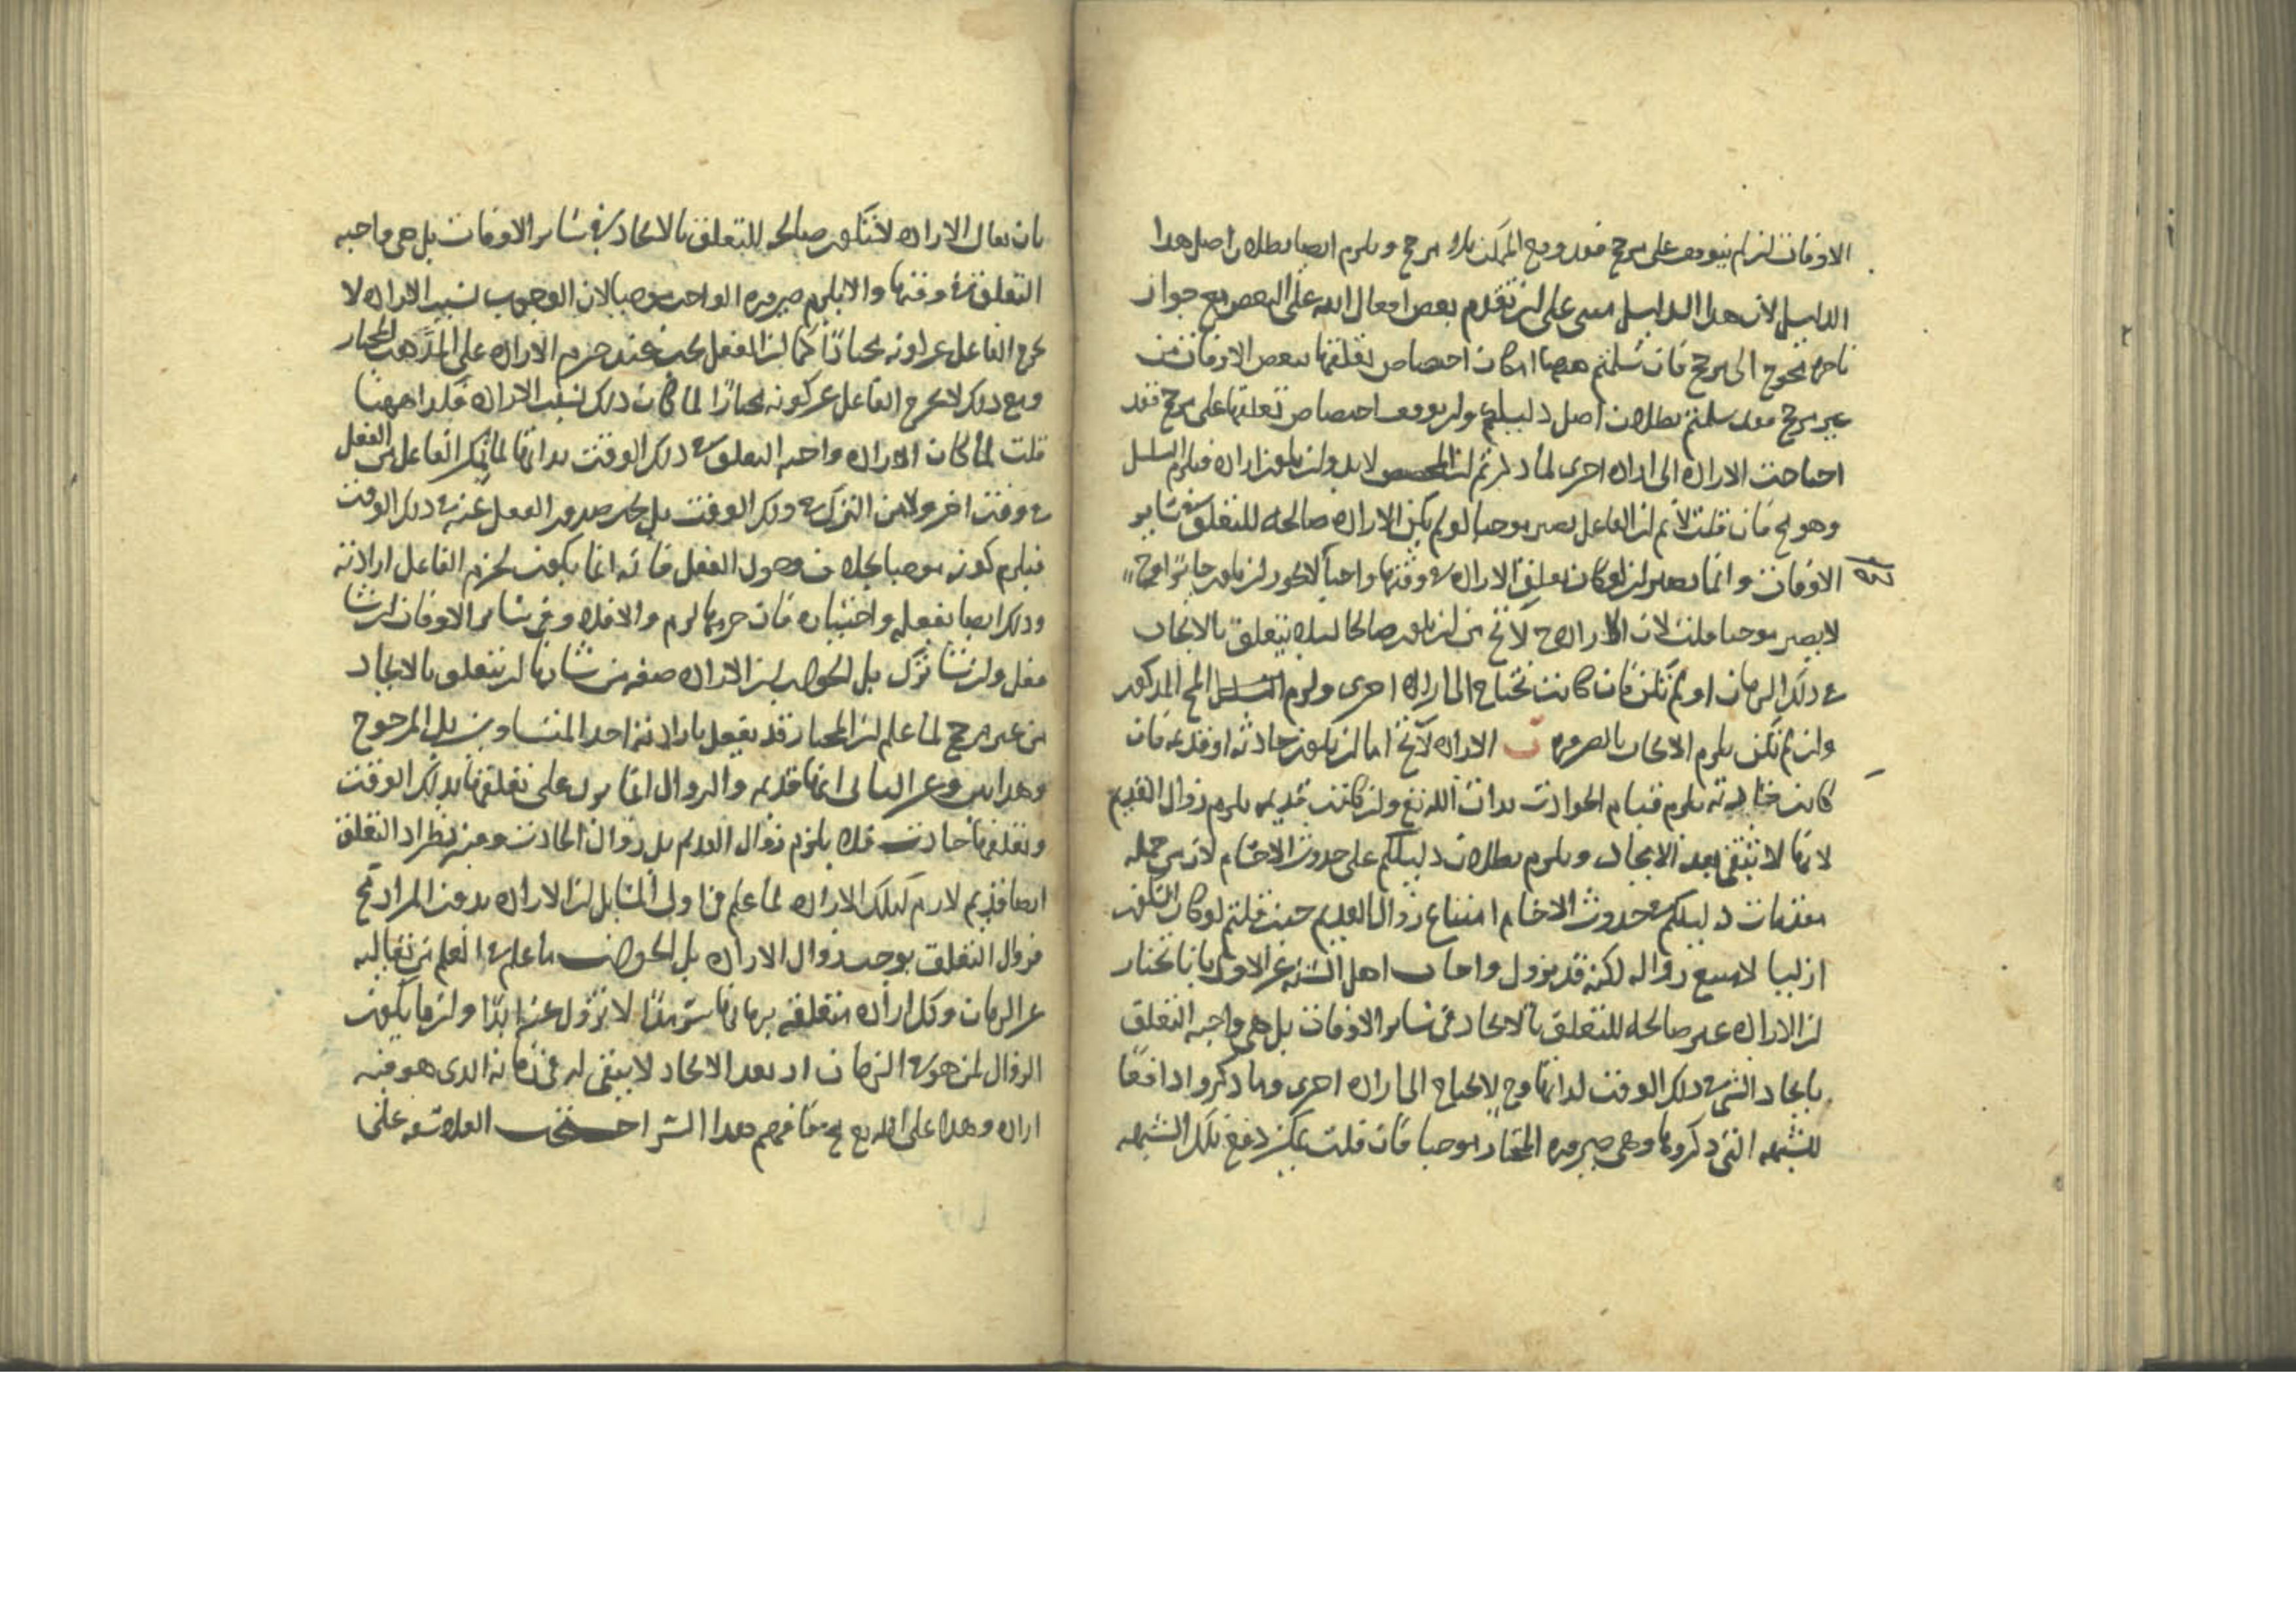 الاوقات ان لم يتوقف على مرجح فقد وقع الممكن بلا مرجح ويلزم ايضا بطلان اصل هذا
الدليل لان هذا الدليل مبنى على ان تقدم بعض افعال الله على البعض مع جواز
تاخره محوج الى مرجح فان سلمتم ههنا امكان اختصاص تعلقها ببعض الاوقات من
غير مرجح فقد سلمتم بطلان اصل دليلكم وان توقف اختصاص تعلقها على مرجح فقد
احتاجت الارادة الى ارادة اخرى لما ذكرتم ان المخصص لابد وان يكون ارادة فيلزم التسلسل
وهو مح فان قلت لانم ان الفاعل يصير موجبا لو لم يكن الارادة صالحة للتعلق فى ساير
الاوقات وانما يصير ان لو كان تعلق الارادة فى وقتها واجبا لا يجوز ان يكون جائزا وح
لا يصير موجبا قلت لان الارادة ح لا تخ من ان يكون صالحا لئلا يتعلق بالايجاب
فى ذلك الزمان او لم تكن فان كانت تحتاج الى ارادة اخرى ولزم التسلسل المح المذكور
وان لم تكن يلزم الايجاب بالضرورة ب الارادة لا تخ اما ان يكون حادثة او قديمة فان
كانت حادثة يلزم قيام الحوادث بذات الله تع وان كانت قديمة يلزم زوال القديم
لانها لا تبقى بعد الايجاد ويلزم بطلان دليلكم على حدوث الاجسام لان من جملة
مقدمات دليلكم فى حدوث الاجسام امتناع زوال القديم حيث قلتم لو كان السكون
ازليا لامتنع زواله لكنه قد يزول واجاب اهل السنة عن الاول بانا نختار
ان الارادة غير صالحة للتعلق بالايجاد فى ساير الاوقات بل هى واجبة التعلق
بايجاد الشى فى ذلك الوقت لذاتها وح لا يحتاج الى ارادة اخرى وما ذكروا دافعا
للشبهة التى ذكروها وهى صيرورة المختار موجبا فان قلت يمكن دفع تلك الشبهة
بان يقال الارادة لا تكون صالحة للتعلق بالايجاد فى ساير الاوقات بل هى واجبة
التعلق فى وقتها والا يلزم صيرورة الواجب موجبا لان الوجوب بسبب الارادة لا
يخرج الفاعل عن كونه مختارا كما ان الفعل يجب عند جزم الارادة على المذهب المختار
ومع ذلك لا يخرج الفاعل عن كونه مختارا لما كان ذلك بسبب الارادة فكذا ههنا
قلت لما كان الارادة واجبة التعلق فى ذلك الوقت بذاتها لم يتمكن الفاعل من الفعل
فى وقت اخر ولا من الترك فى ذلك الوقت بل يجب صدور الفعل عنه فى ذلك الوقت
فيلزم كونه موجبا بخلاف وصول الفعل فانه انما يكون لجزم الفاعل ارادته
وذلك ايضا بفعله واختياره فان جزمها لزم والا فلا وفى ساير الاوقات ان شا
فعل وان شا ترك بل الجواب ان الارادة صفة من شانها ان تتعلق بالايجاد
من غير مرجح لما علم ان المختار قد يفعل بارادته احد المتساويين بل المرجوح
وهذا بين وعن الثانى انها قديمة والزوال انما يرد على تعلقها بذلك الوقت
وتعلقها حادث فلا يلزم زوال القديم بل زوال الحادث وفيه نظر اذ التعلق
ايضا قديم لازم لتلك الارادة لما علم فى اولى المسايل ان الارادة بدون المراد مح
فزوال التعلق يوجب زوال الارادة بل الجواب ما علم فى العلم من تعاليه
عن الزمان وكل ارادة متعلقة بزمانها سرمدا لا تزول عنه ابدا وانما يكون
الزوال لمن هو فى الزمان اذ بعد الايجاد لا يبقى له فى زمانه الذى هو فيه
ارادة وهذا على الله تع مح فافهم هذا السر احتجت الفلاسفة على